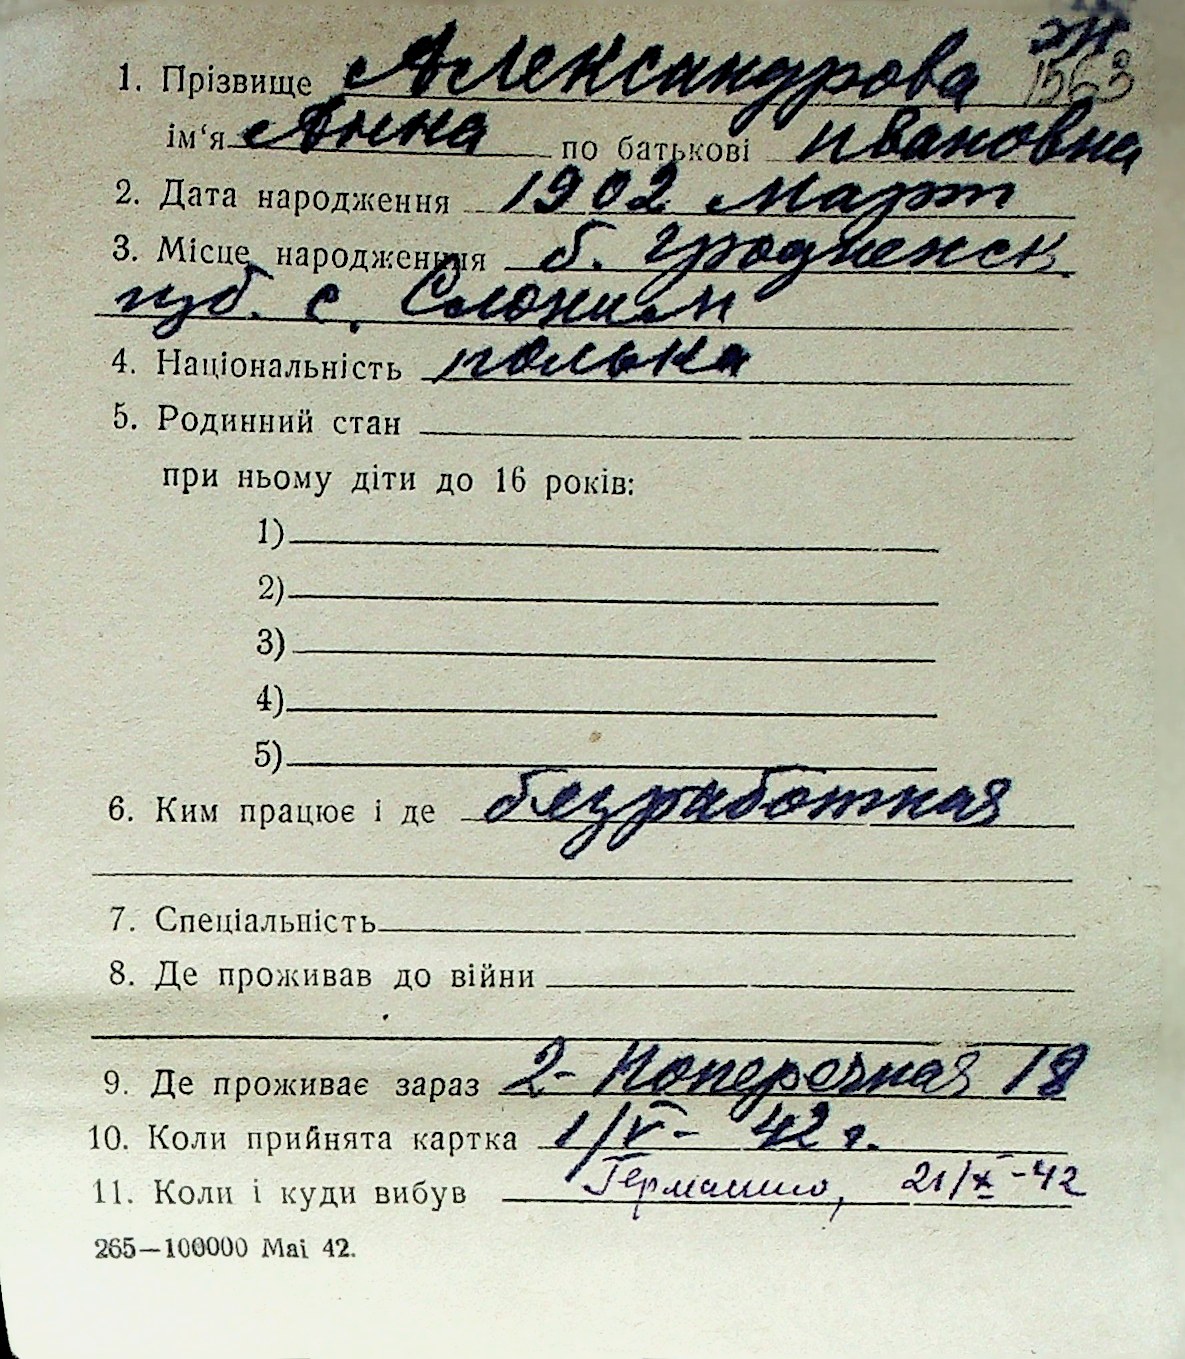 1. Прізвище Александрова 1563
ім‘я Анна по батькові Ивановна
2. Дата народження 1902 Март
3. Місце народження б. Гродненск
губ. с. Слоним
4. Національність полька
5. Родинний стан
при ньому діти до 16 років:
1)
2)
3)
4)
5)
6. Ким працює і де безработная
7. Спеціальність
8. Де проживав до війни
9. Де проживає зараз 2- Поперечная 18
10. Коли прийнята картка 1/V- 42 г.
11. Коли і куди вибув Германию, 21/X-42
265—100000 Mai 42.